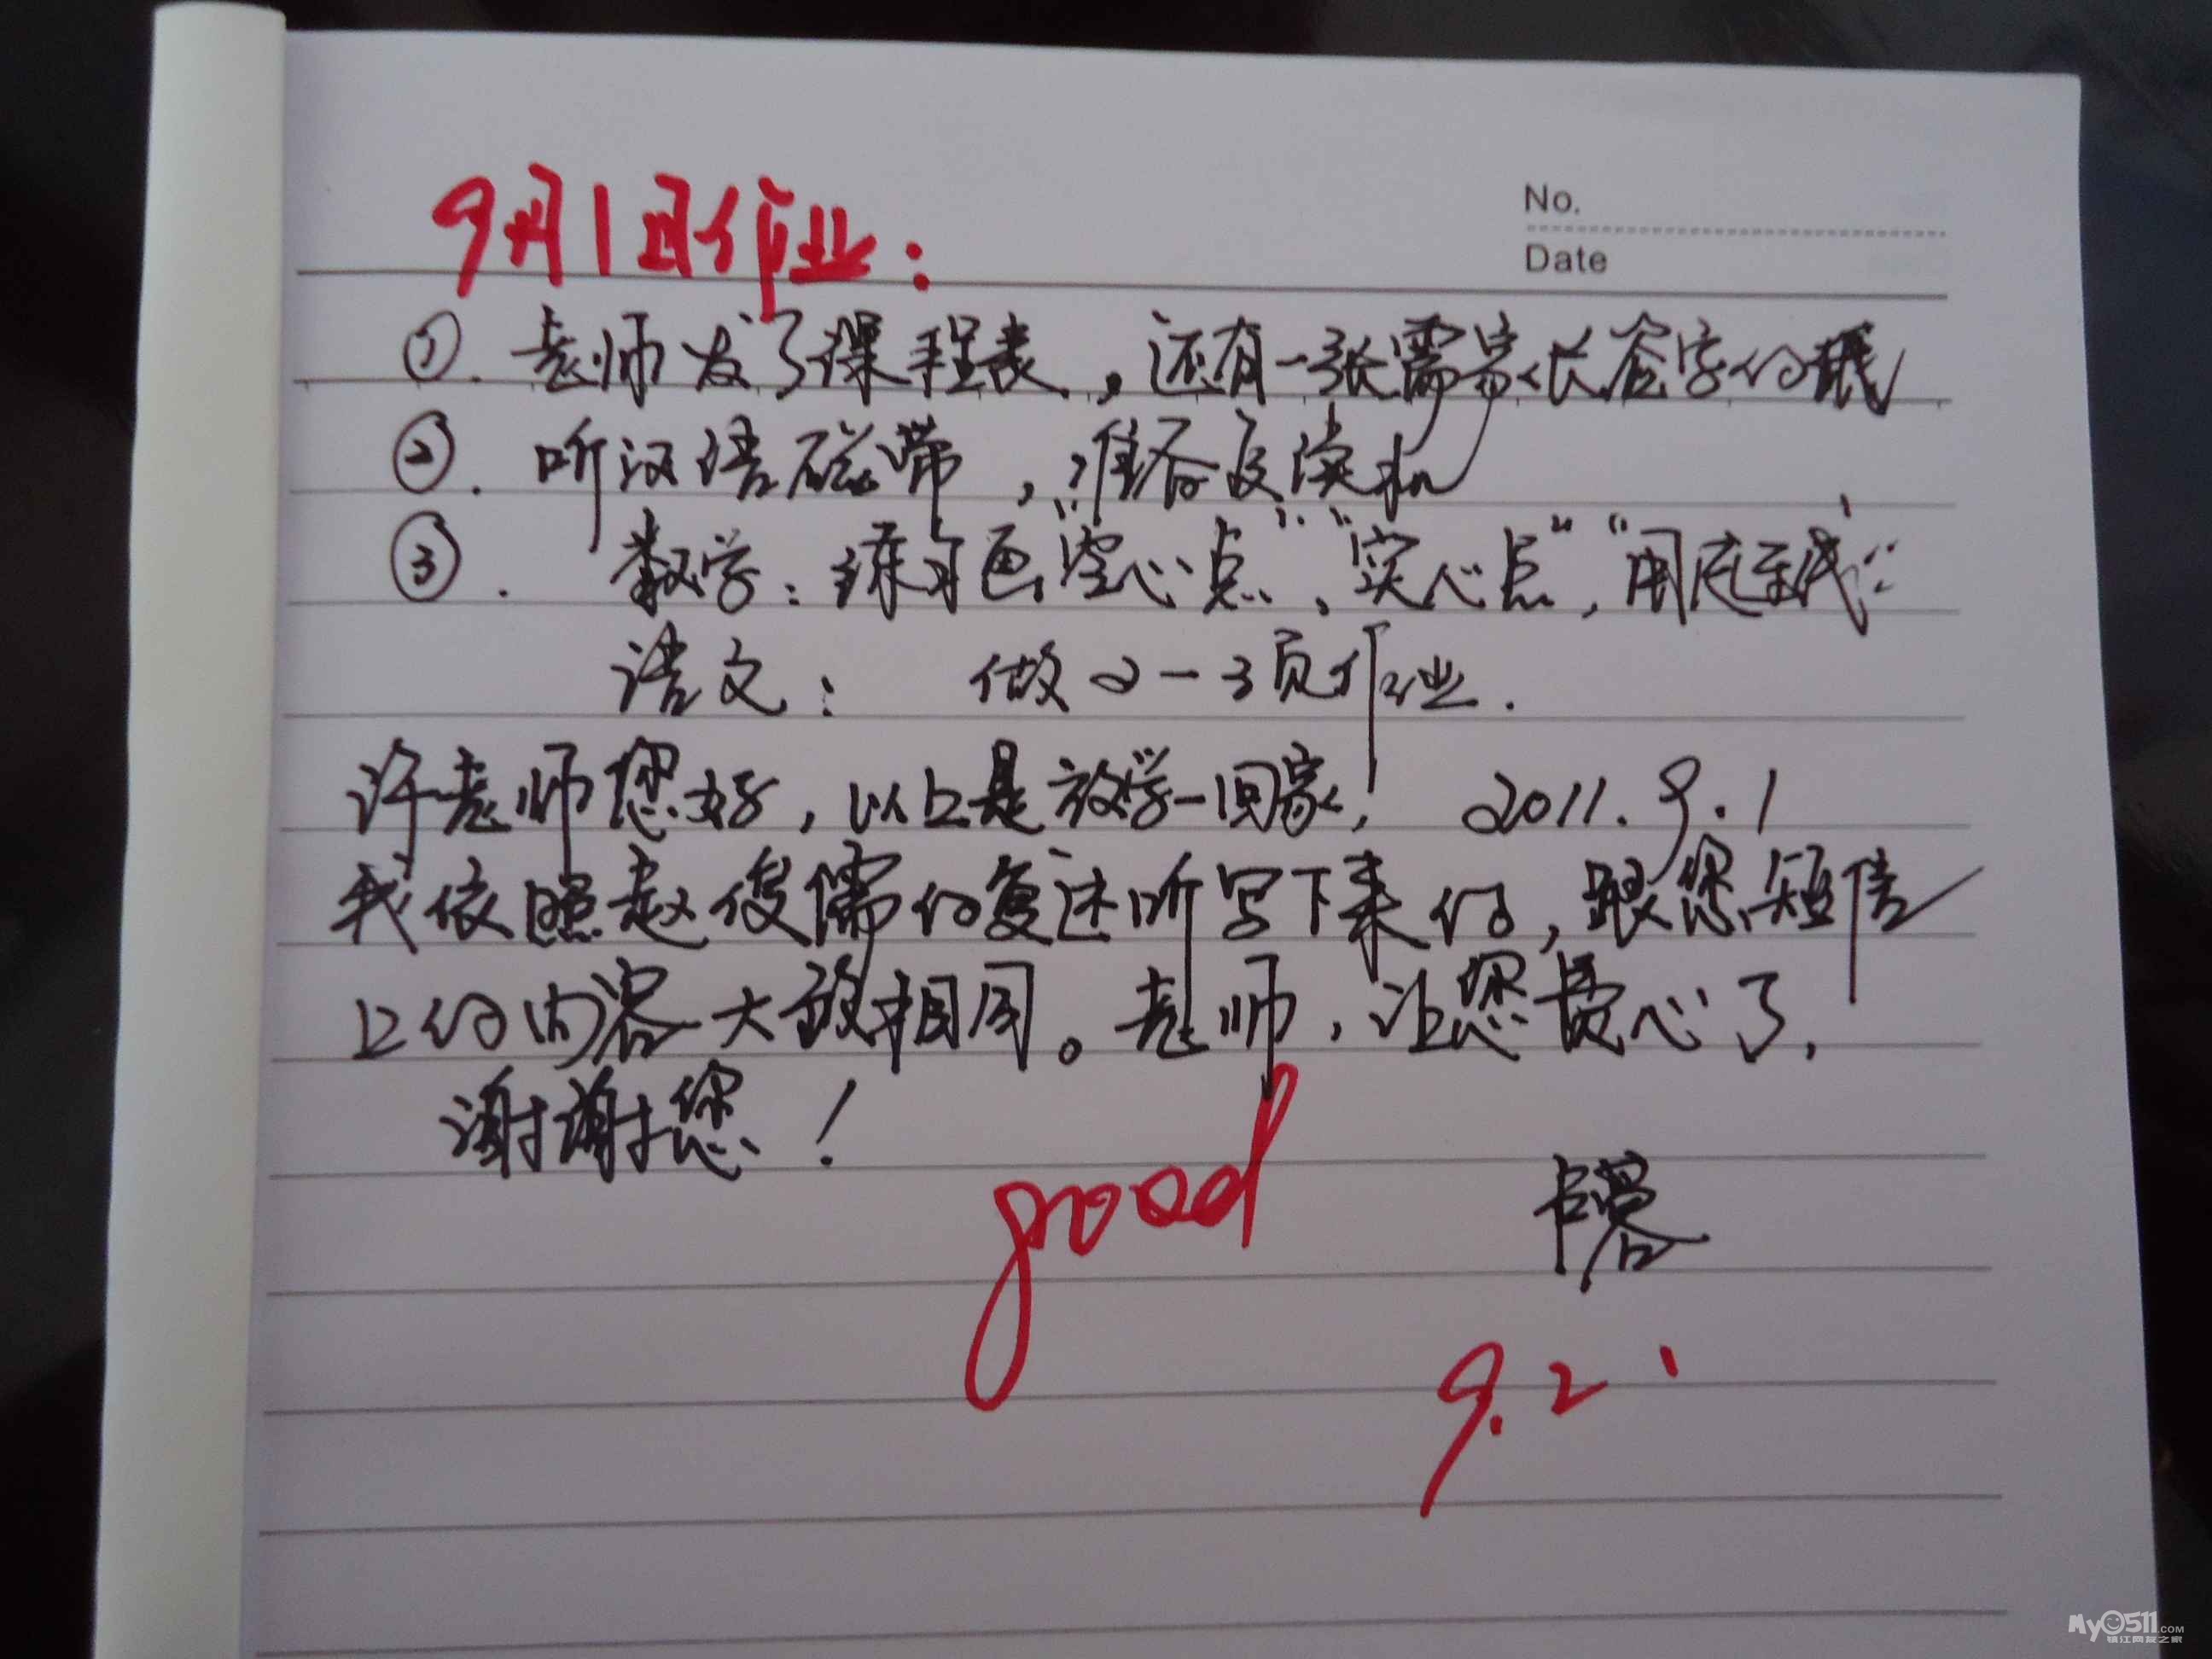 No.
Date
9月1日作业：
①. 老师发了课程表，还有一张需家长签字的
②. 听汉语磁带，准备复读机
③. 数学：练习画“空心点”、“实心点”，“用
语文： 做2-3页作业.
许老师您好，以上是放学一回家， 2011.9.1
我依照赵俊儒的复述听写下来的，跟您短信
上的内容大致相同。老师，让您费心了，
谢谢您！
good
9.2
My0511.COM
镇江网友之家